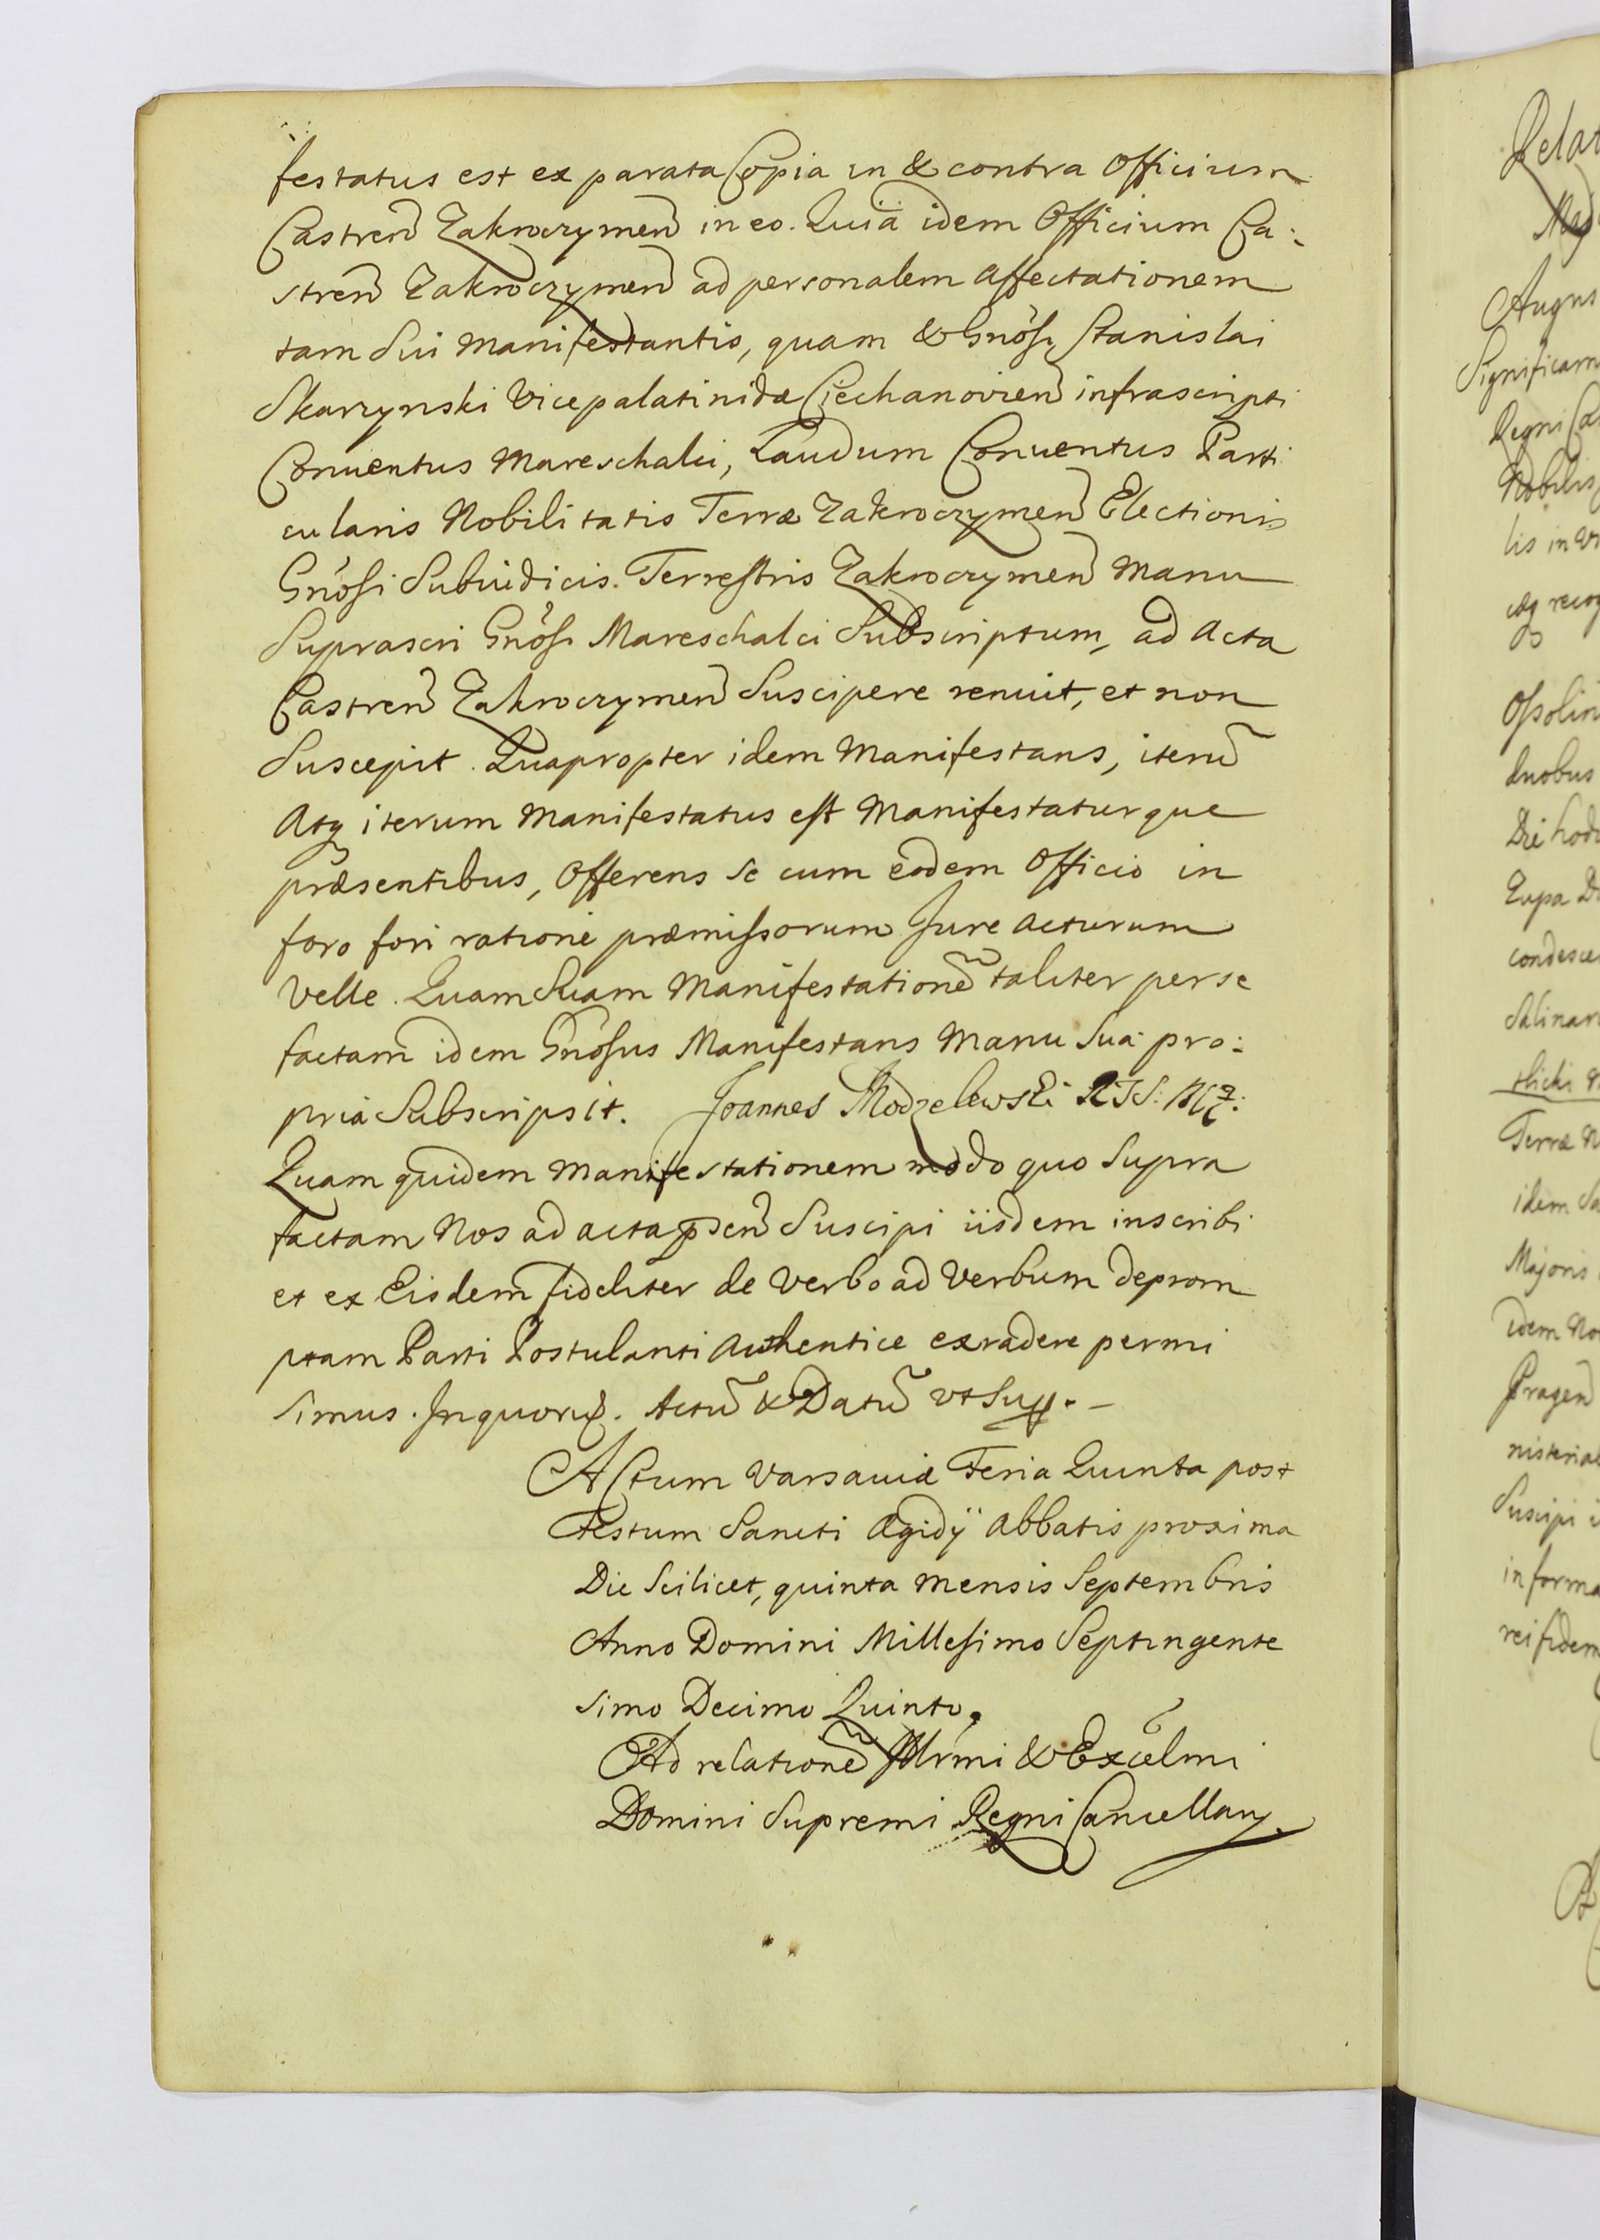 festatus est ex parata Copia in & contra Officium
Castren Zakroczymen in eo. Quiä idem Officium Ca:
stren Zakroczymen ad personalem affectationem
tam sui Manifestantis, quam & Gnosi Stanislai
Skarzynski Vicepalatinidæ Ciechanovien infrascripti
Conuentus Mareschalci, Laudum Conuentus Parti
cularis Nobilitatis Terræ Zakroczymen Electionis
Gnosi Subiudicis. Terrestris Zakroczymen Manu
Suprascri Gnosi Mareschalci Subscriptum, ad Acta
Castren Zakroczymen Suscipere renuit, et non
Suscepit. Quapropter idem Manifestans, iterū
Atq iterum Manifestatus est Manifestaturque
præsentibus, Offerens se cum eodem Officio in
foro fori ratione præmissorum Jure acturum
Velle. Quam Suam Manifestationē taliter per se
factam idem Gnosus Manifestans Manu Sua pro:
pria Subscripsit. Joannes Modzelewski
Quam quidem Manifestationem modo quo Supra
factam Nos ad acta psen Suscipi iisdem inscribi
et ex Eisdem fideliter de Verbo ad Verbum deprom
ptam Parti Postulanti Authentice exradere permi
simus. In quorū. Actū & Datū vt Sup. –
Actum Varsauiæ Feria Quinta post
Festum Sancti Ægidÿ Abbatis proxima
Die Scilicet, quinta Mensis Septembris
Anno Domini Millesimo Septingente
simo Decimo Quinto.
Ad relationē Illrmi & Excelmi
Domini Supremi Regni Cancellarij.
Relat
Augus
Significam
Regni Ca
Nobilis
lis in
Ossolin
duobus
Die hod
Zupa
condesce
Salinar
Terræ N
idem Sa
Majoris
idem No
Pragen
nisterial
Suscipi i
in forma
rei fidem